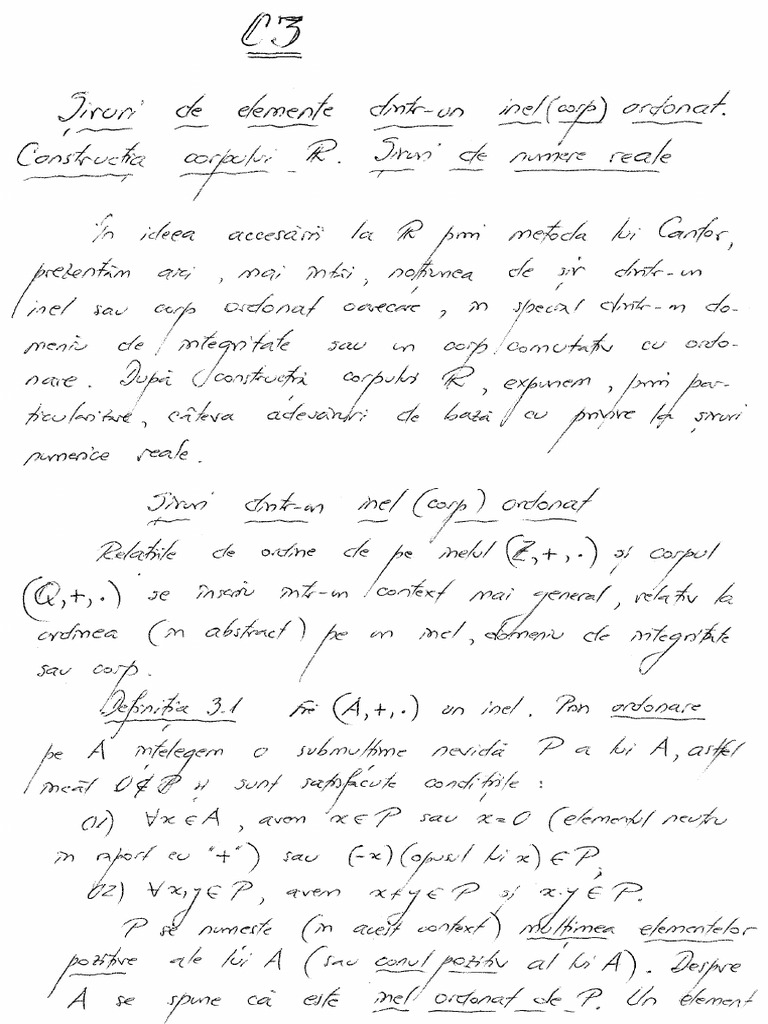 C3
Şiruri de elemente dintr-un inel (corp) ordonat.
Construcţia corpului ℝ. Şiruri de numere reale
În ideea accesării la ℝ prin metoda lui Cantor,
prezentăm aici, mai întâi, noţiunea de şir dintr-un
inel sau corp ordonat oarecare, în special dintr-un do-
meniu de integritate sau un corp comutativ cu ordo-
nare. După construcţia corpului ℝ, expunem, prin par-
ticularizare, câteva adevăruri de bază cu privire la şiruri
numerice reale.
Şiruri dintr-un inel (corp) ordonat
Relaţiile de ordine de pe inelul (ℤ,+,·) şi corpul
(ℚ,+,·) se înscriu într-un context mai general, relativ la
ordinea (în abstract) pe un inel, domeniu de integritate
sau corp.
Definiţia 3.1 Fie (A,+,·) un inel. Prin ordonare
pe A înţelegem o submulţime nevidă P a lui A, astfel
încât 0∉P şi sunt satisfăcute condiţiile :
O1) ∀x∈A, avem x∈P sau x=0 (elementul neutru
în raport cu "+") sau (-x)(opusul lui x) ∈P;
O2) ∀x,y∈P, avem x+y∈P şi x·y∈P.
P se numeste (în acest context) mulţimea elementelor
pozitive ale lui A (sau conul pozitiv al lui A). Despre
A se spune că este inel ordonat de P. Un element